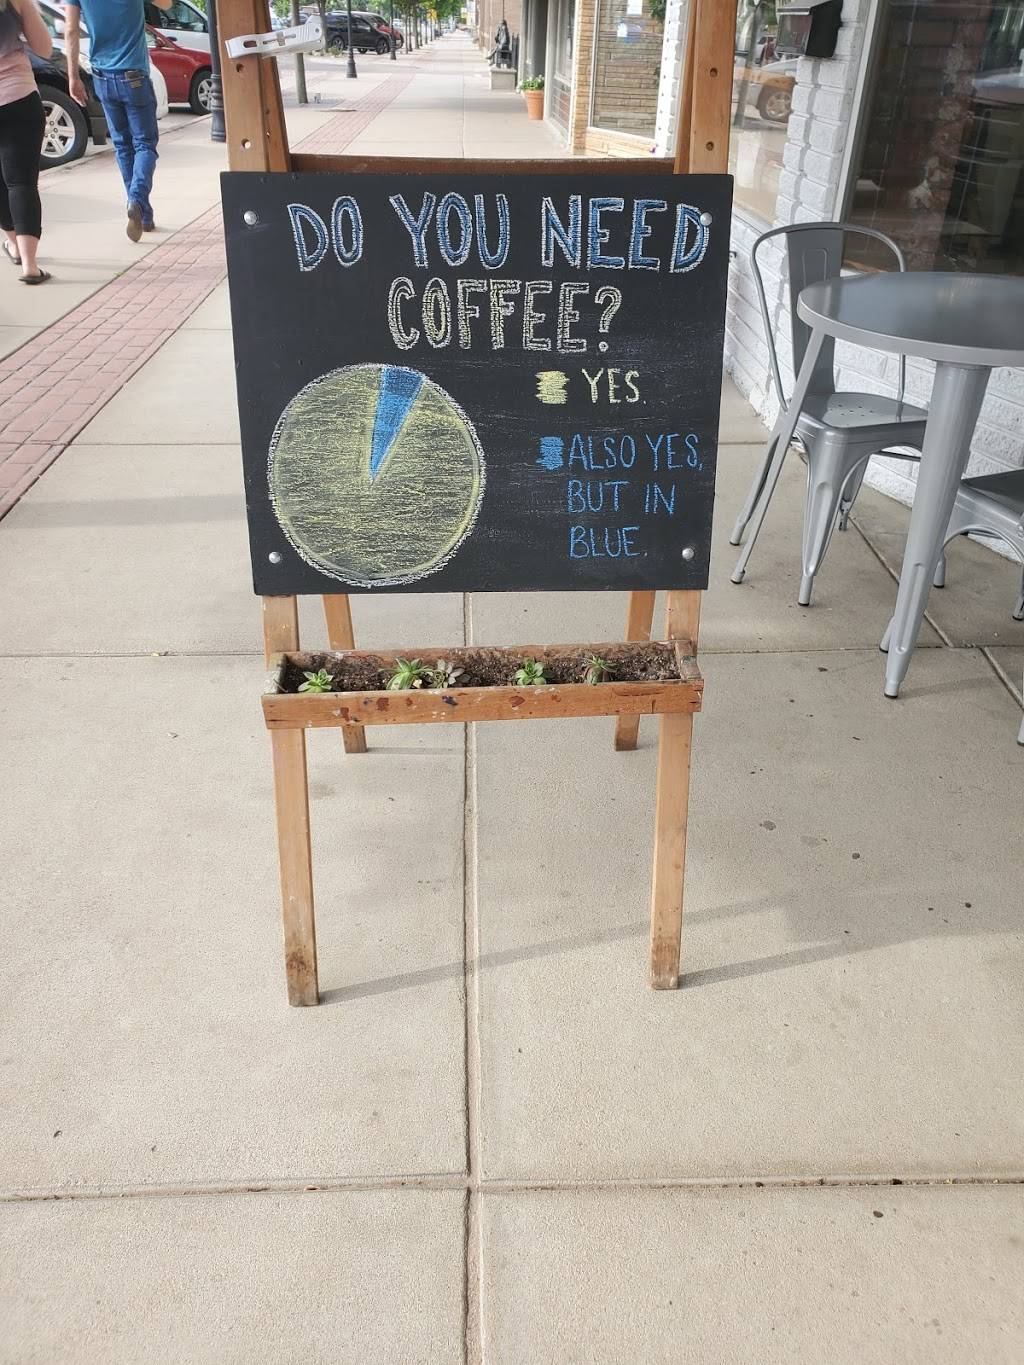 DO YOU NEED
COFFEE?
YES.
ALSO YES,
BUT IN
BLUE.